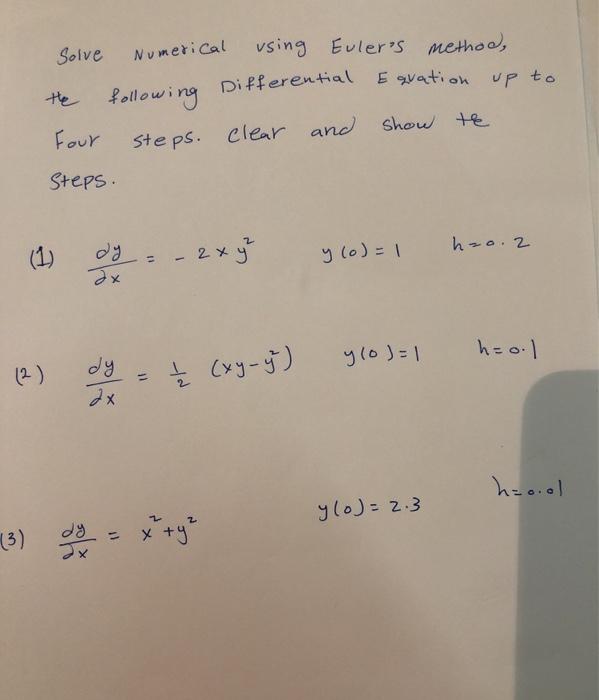 Solve Numerical using Euler's method,
the following Differential Equation up to
Four steps. clear and show the
Steps.
(1) dy/dx = - 2xy² y(0)=1 h=0.2
(2) dy/dx = 1/2 (xy-y²) y(0)=1 h=0.1
(3) dy/dx = x²+y² y(0)= 2.3 h=0.01